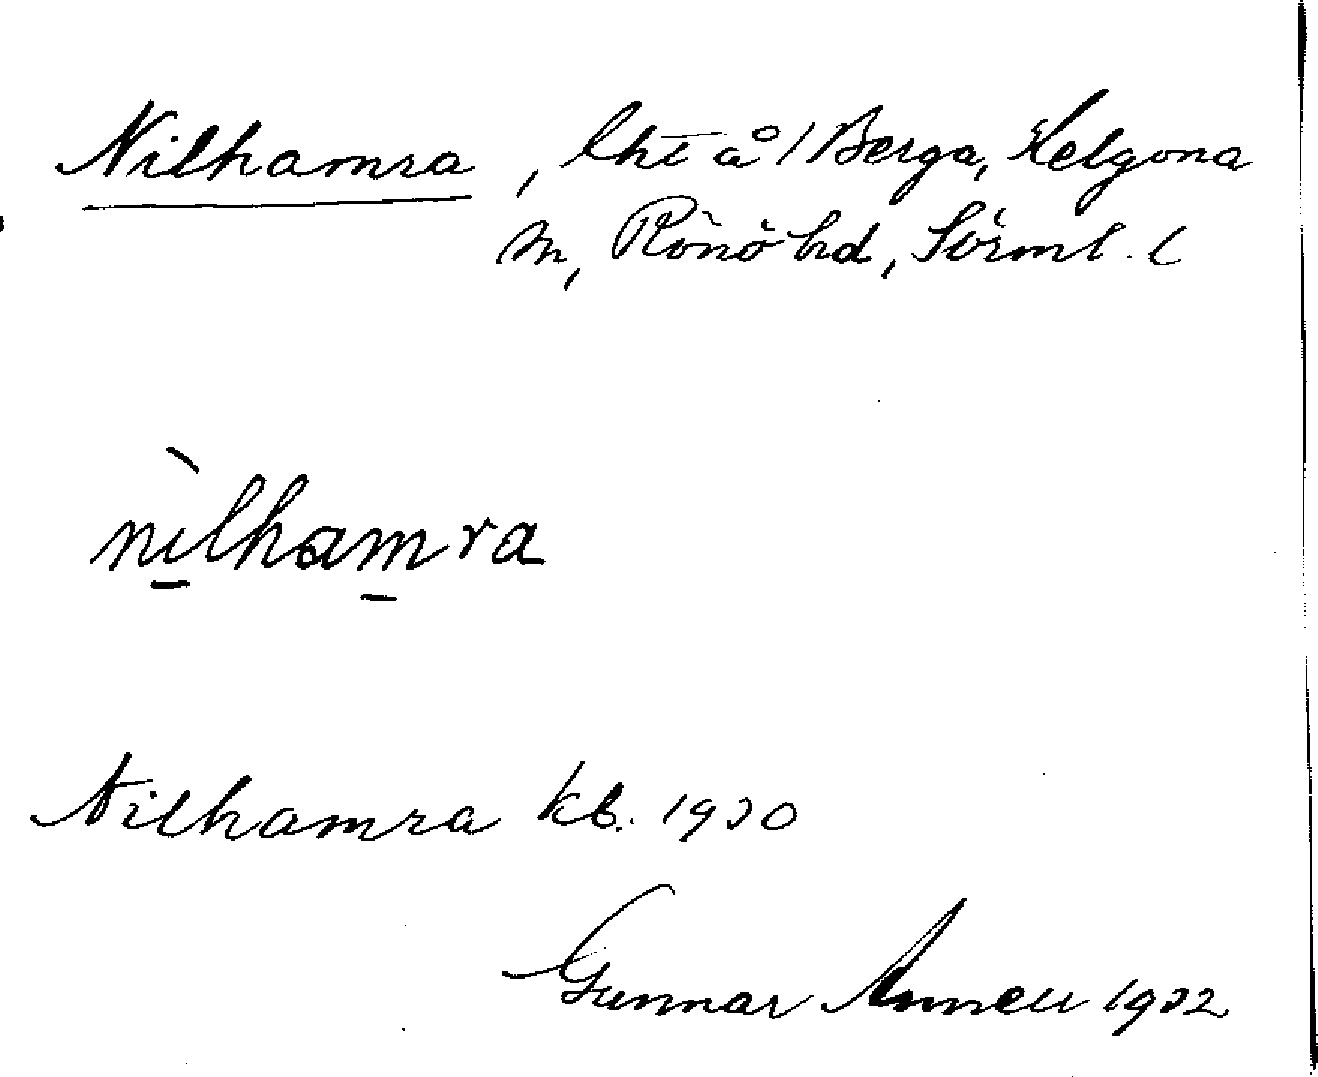 Nilhamra, lht å 1 Berga, Helgona
sn, Rönö hd, Sörml. l
nìlhamra
Nilhamra kb. 1930
Gunnar Annell 1932